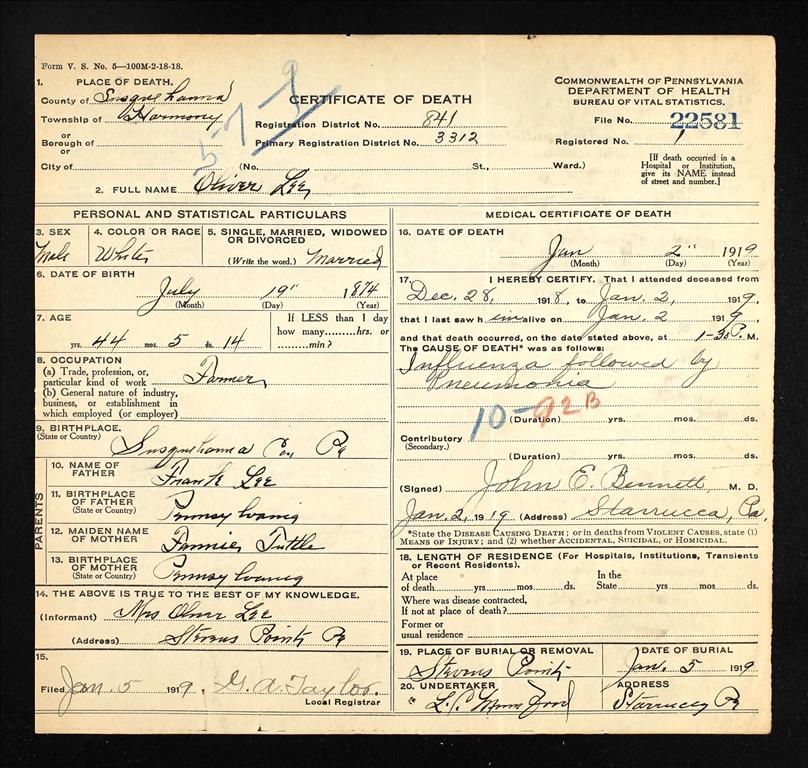 Form V. S. No. 5—100M-2-18-18.
1. PLACE OF DEATH.
County of Susquehanna
Township of Harmony
or
Borough of
or
City of (No. St., Ward.)
5-7-9
CERTIFICATE OF DEATH
Registration District No. 841
Primary Registration District No. 3312
COMMONWEALTH OF PENNSYLVANIA
DEPARTMENT OF HEALTH
BUREAU OF VITAL STATISTICS.
File No. 22581
Registered No. 1
[If death occurred in a Hospital or Institution, give its NAME instead of street and number.]
2. FULL NAME Oliver Lee
PERSONAL AND STATISTICAL PARTICULARS
3. SEX Male
4. COLOR OR RACE White
5. SINGLE, MARRIED, WIDOWED OR DIVORCED
(Write the word.) Married
6. DATE OF BIRTH
July 19" 1874
(Month) (Day) (Year)
7. AGE
yrs. 44 mos. 5 ds. 14
If LESS than 1 day how many hrs. or min.?
8. OCCUPATION
(a) Trade, profession, or, particular kind of work Farmer
(b) General nature of industry, business, or establishment in which employed (or employer)
9. BIRTHPLACE.
(State or Country) Susquehanna Co, Pa
PARENTS
10. NAME OF FATHER Frank Lee
11. BIRTHPLACE OF FATHER
(State or Country) Pennsylvania
12. MAIDEN NAME OF MOTHER Fannie Tuttle
13. BIRTHPLACE OF MOTHER
(State or Country) Pennsylvania
14. THE ABOVE IS TRUE TO THE BEST OF MY KNOWLEDGE.
(Informant) Mrs Oliver Lee
(Address) Stevens Point Pa
15.
Filed Jan. 5 1919. G. A. Taylor.
Local Registrar
MEDICAL CERTIFICATE OF DEATH
16. DATE OF DEATH
Jan 2" 1919
(Month) (Day) (Year)
17. I HEREBY CERTIFY, That I attended deceased from
Dec. 28, 1918, to Jan. 2, 1919.
that I last saw h im alive on Jan. 2 1919
and that death occurred, on the date stated above, at 1-30 P. M.
The CAUSE OF DEATH* was as follows:
Influenza followed by
Pneumonia
10-92B
(Duration) yrs. mos. ds.
Contributory
(Secondary.)
(Duration) yrs. mos. ds.
(Signed) John E. Bennett, M. D.
Jan. 2, 1919 (Address) Starrucca, Pa.
*State the DISEASE CAUSING DEATH; or in deaths from VIOLENT CAUSES, state (1) MEANS OF INJURY; and (2) whether ACCIDENTAL, SUICIDAL, or HOMICIDAL.
18. LENGTH OF RESIDENCE (For Hospitals, Institutions, Transients or Recent Residents).
At place of death yrs mos ds. In the State yrs mos ds.
Where was disease contracted,
If not at place of death?
Former or
usual residence
19. PLACE OF BURIAL OR REMOVAL
Stevens Point
DATE OF BURIAL
Jan. 5 1919
20. UNDERTAKER
ADDRESS
Starrucca Pa